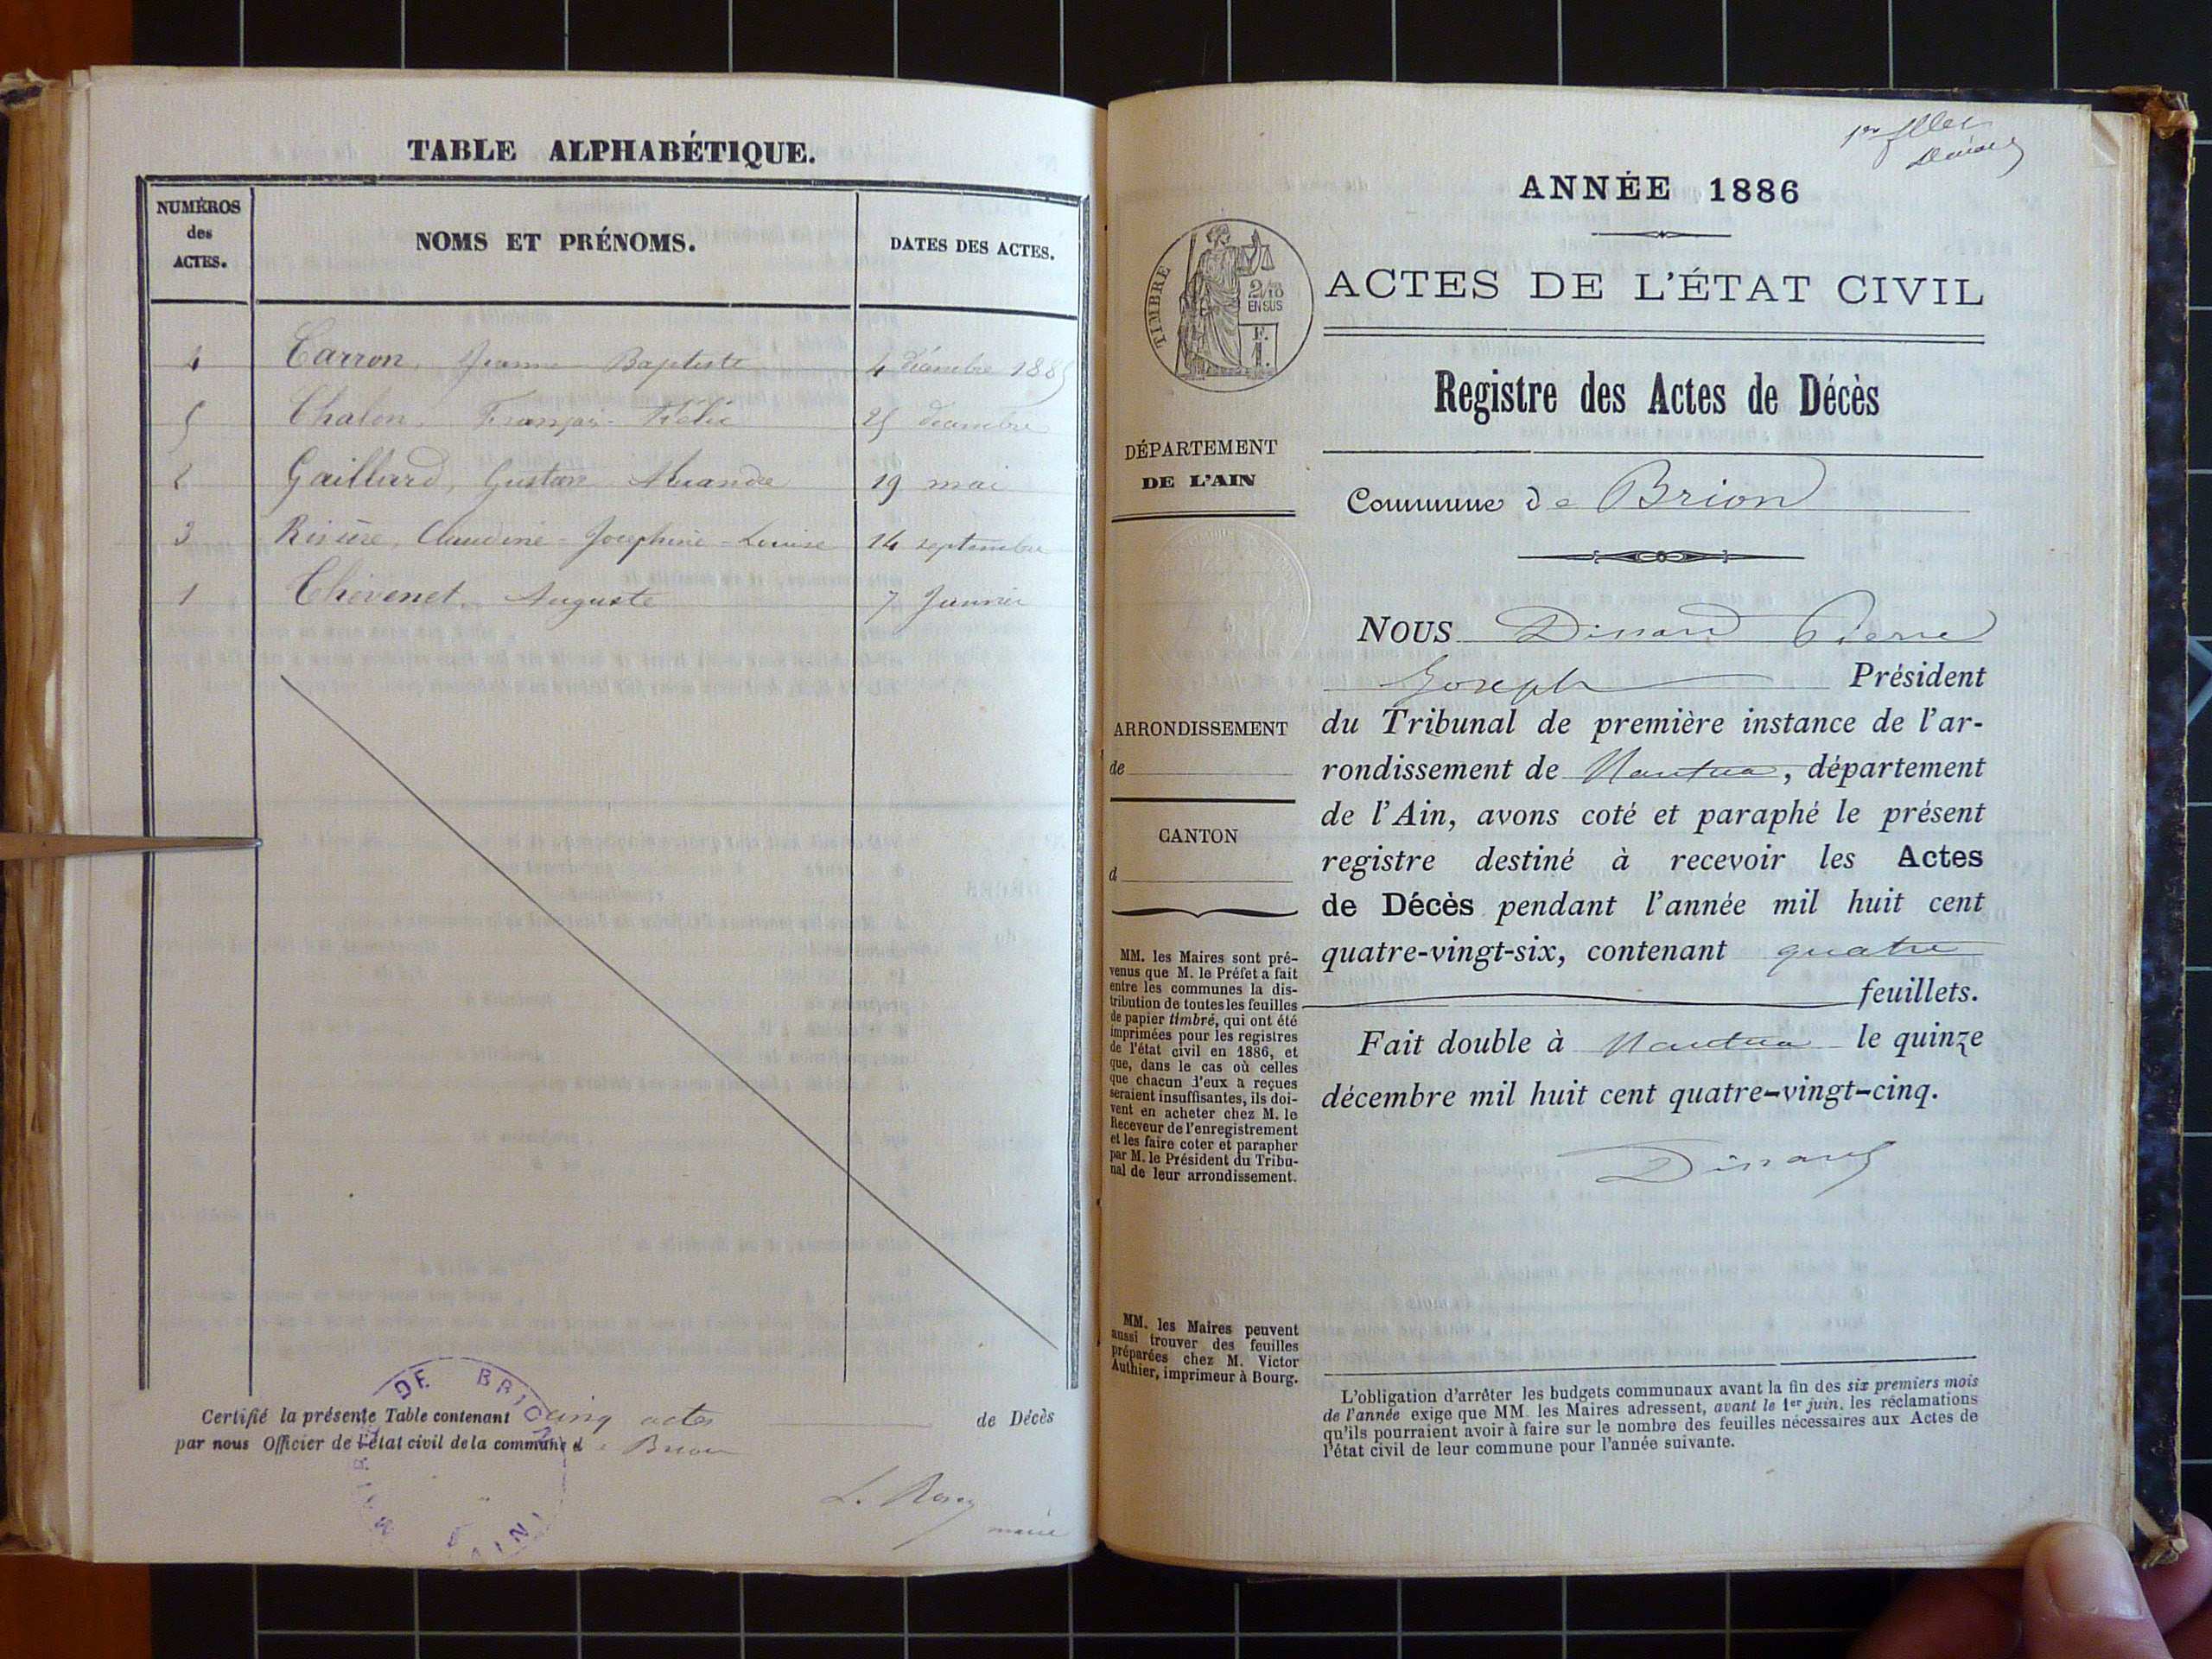 TABLE ALPHABÉTIQUE.
NUMÉROS
des
ACTES.
NOMS ET PRÉNOMS.
DATES DES ACTES.
4 Carron, Jeanne Baptiste 4 décembre 1885
5 Chalon, François Félix 25 décembre
2 Gaillard, Gustave 19 mai
3 Rivière, Claudine-Joséphine-Louise 14 septembre
1 Thévenet, Auguste 7 Janvier
Certifié la présente Table contenant cinq actes de Décès
par nous Officier de l'état civil de la commune de Brion
DE BRION
AIN
maire
1er
ANNÉE 1886
TIMBRE
2/10
EN SUS
F.
1.
ACTES DE L'ÉTAT CIVIL
Registre des Actes de Décès
DÉPARTEMENT
DE L'AIN
Commune de Brion
NOUS Dinard Pierre
Joseph Président
du Tribunal de première instance de l'ar-
rondissement de Nantua, département
de l'Ain, avons coté et paraphé le présent
registre destiné à recevoir les Actes
de Décès pendant l'année mil huit cent
quatre-vingt-six, contenant quatre
feuillets.
Fait double à Nantua le quinze
décembre mil huit cent quatre-vingt-cinq.
Dinard
ARRONDISSEMENT
de
CANTON
d
MM. les Maires sont pré-
venus que M. le Préfet a fait
entre les communes la dis-
tribution de toutes les feuilles
de papier timbré, qui ont été
imprimées pour les registres
de l'état civil en 1886, et
que, dans le cas où celles
que chacun d'eux a reçues
seraient insuffisantes, ils doi-
vent en acheter chez M. le
Receveur de l'enregistrement
et les faire coter et parapher
par M. le Président du Tribu-
nal de leur arrondissement.
MM. les Maires peuvent
aussi trouver des feuilles
préparées chez M. Victor
Authier, imprimeur à Bourg.
L'obligation d'arrêter les budgets communaux avant la fin des six premiers mois
de l'année exige que MM. les Maires adressent, avant le 1er juin, les réclamations
qu'ils pourraient avoir à faire sur le nombre des feuilles nécessaires aux Actes de
l'état civil de leur commune pour l'année suivante.